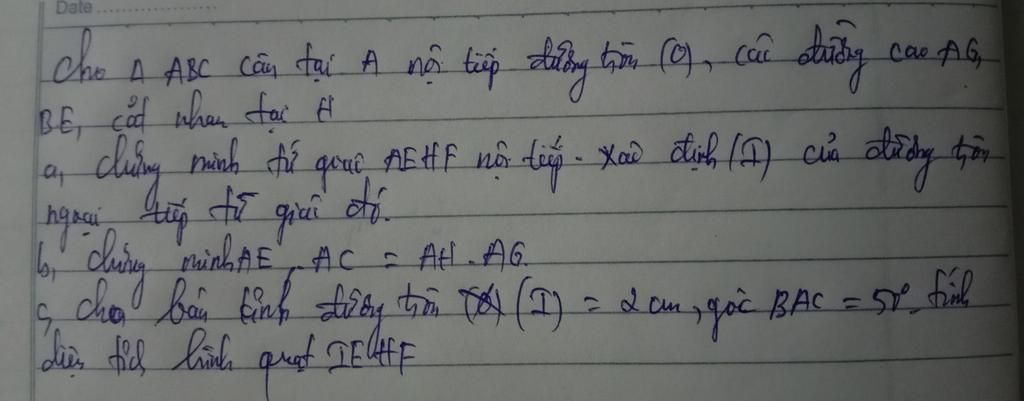 Date
Cho Δ ABC cân tại A nội tiếp đường tròn (O), các đường cao AG,
BE, cắt nhau tại H
a, chứng minh tứ giác AEHF nội tiếp - xác định (I) của đường tròn
ngoại tiếp tứ giác đó.
b, chứng minh AE . AC = AH . AG
c, cho bán kính đường tròn (I) = 2 cm, góc BAC = 50° tính
diện tích hình quạt IEHF